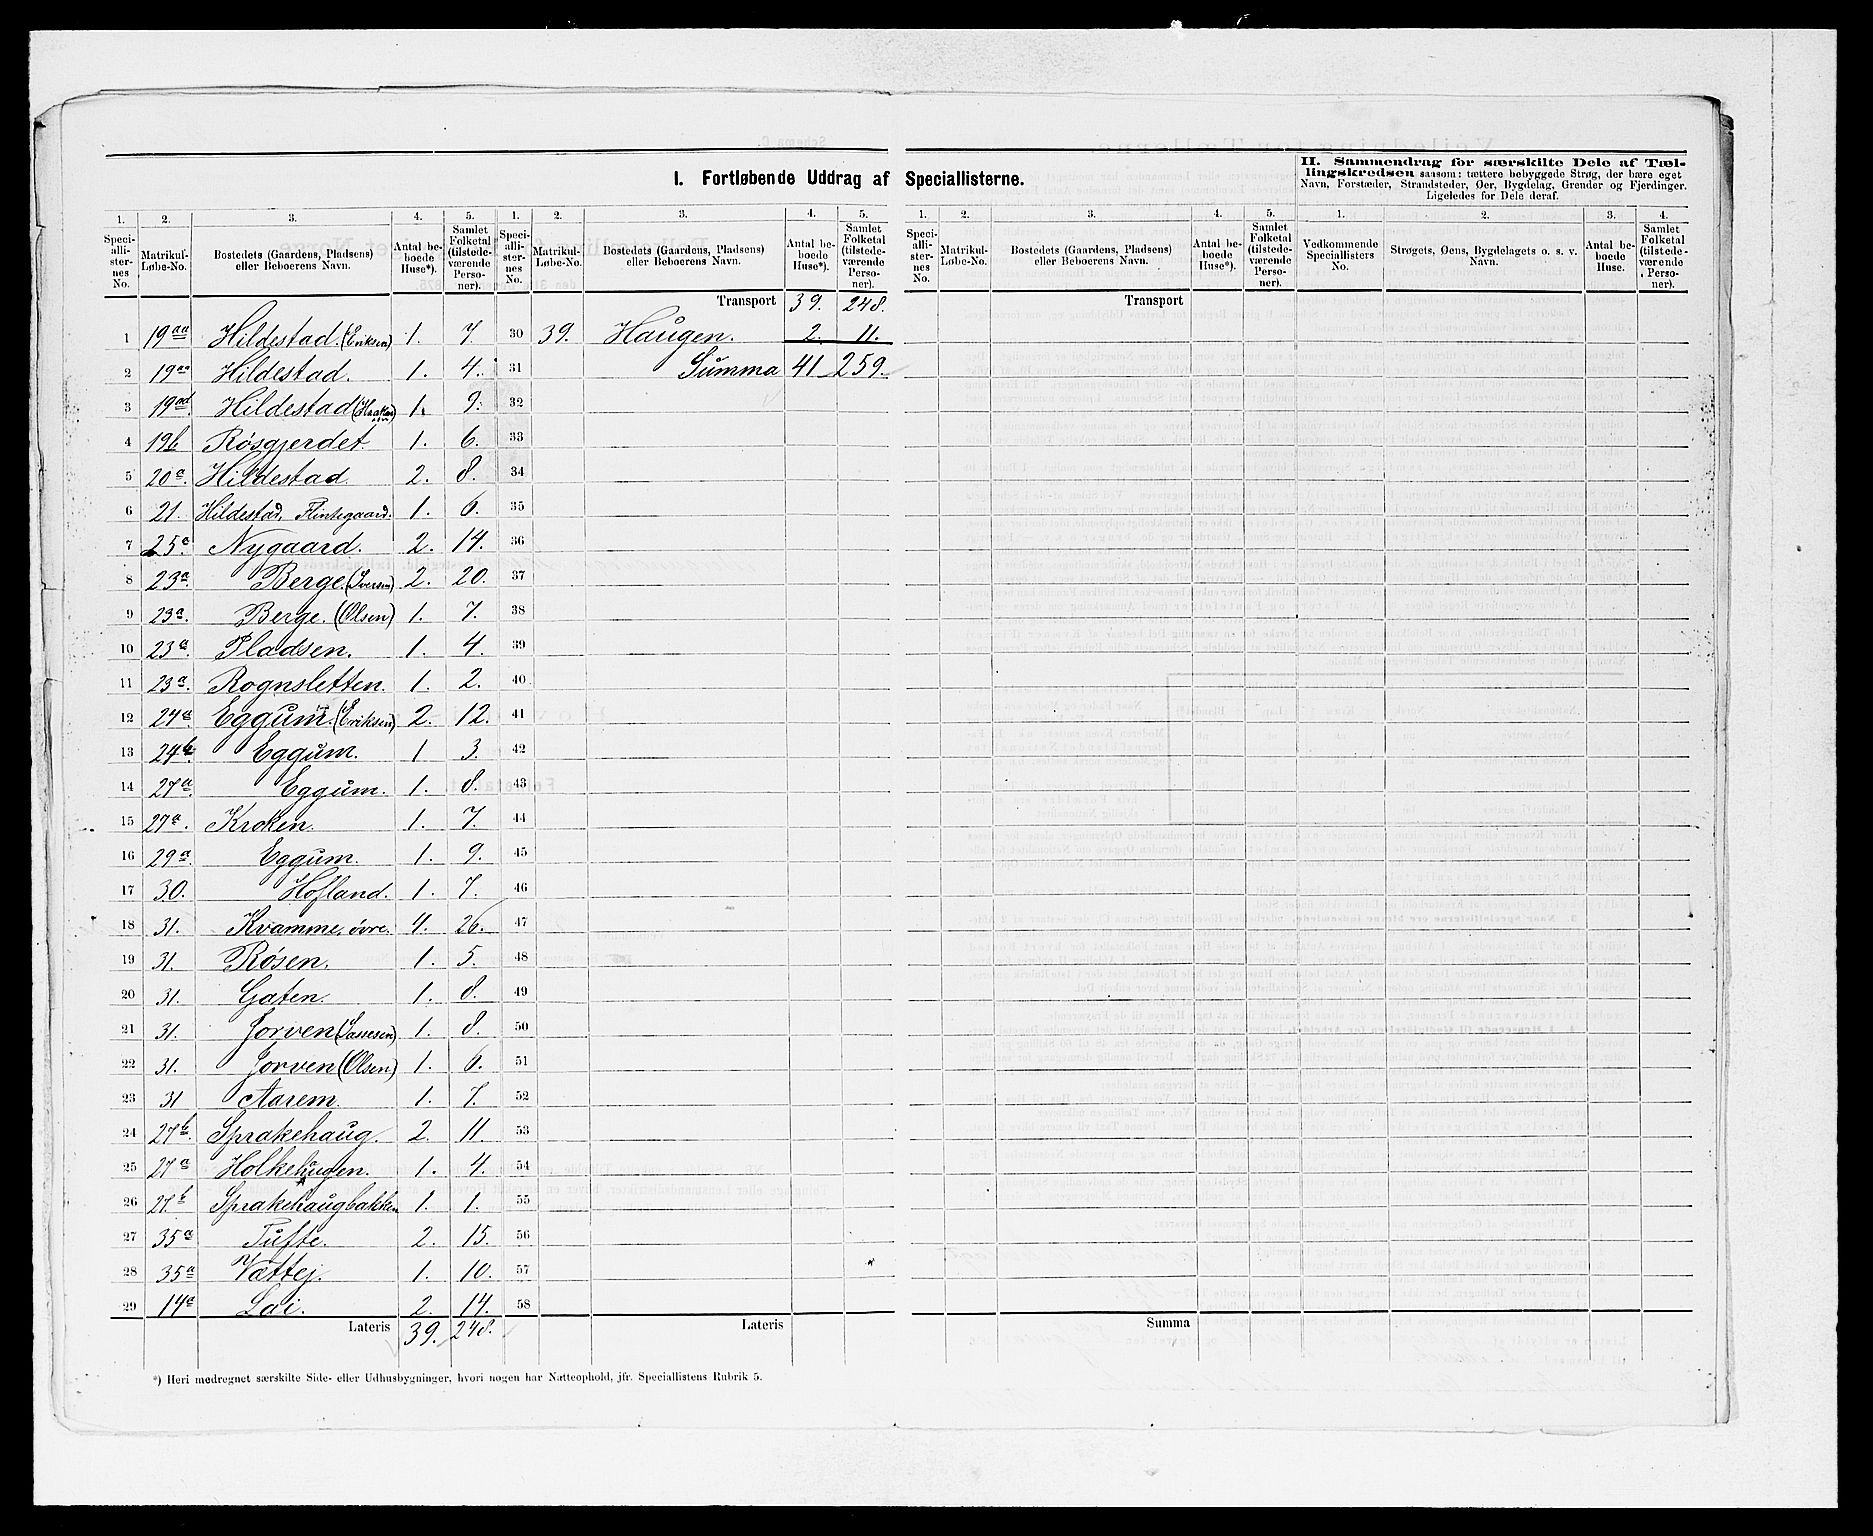 I. Fortløbende Uddrag af Speciallisterne.
II. Sammendrag for særskilte Dele af Tællingskredsen saasom: tættere bebyggede Strøg, der bære eget
Navn, Forstæder, Strandsteder, Øer, Bygdelag, Grender og Fjerdinger.
Ligeledes for Dele deraf.
1. 2. 3. 4. 5. 1. 2. 3. 4. 5. 1. 2. 3. 4. 5. 1. 2. 3. 4.
Speciallisternes No. Matrikul-Løbe-No. Bostedets (Gaardens, Pladsens) eller Beboerens Navn. Antal beboede Huse*). Samlet Folketal (tilstedeværende Personer).
Speciallisternes No. Matrikul-Løbe-No. Bostedets (Gaardens, Pladsens) eller Beboerens Navn. Antal beboede Huse*). Samlet Folketal (tilstedeværende Personer).
Speciallisternes No. Matrikul-Løbe-No. Bostedets (Gaardens, Pladsens) eller Beboerens Navn. Antal beboede Huse*). Samlet Folketal (tilstedeværende Personer).
Vedkommende Speciallisters No. Strøgets, Øens, Bygdelagets o. s. v. Navn. Antal beboede Huse. Samlet Folketal (tilstedeværende Personer).
Transport 39. 248. Transport
1 19aa Hildestad. (Eriksen) 1. 7. 30 39. Haugen. 2. 11.
2 19aa Hildestad. 1. 4. 31 Summa 41 259.
3 19ad Hildestad 1. 9. 32
4 19b Røsgjerdet 1. 6. 33
5 20a. Hildestad. 2. 8. 34
6 21. Hildestad, Flintegaard. 1. 6. 35
7 25a. Nygaard. 2. 14. 36
8 23a. Berge. (Iversen) 2. 20. 37
9 23a. Berge. (Olsen) 1. 7. 38
10 23a. Pladsen. 1. 4. 39
11 23a. Rognsletten. 1. 2. 40
12 24a Eggum. (Eriksen) 2. 12. 41
13 24b. Eggum. 1 3. 42
14 27a. Eggum. 1. 8. 43
15 27a. Kroken. 1. 7. 44
16 29a Eggum. 1. 9. 45
17 30. Hofland. 1. 7. 46
18 31. Kvamme, övre. 4. 26. 47
19 31. Røsen. 1. 5. 48
20 31. Gaten. 1. 8. 49
21 31. Jorven (Lassesen) 1. 8. 50
22 31. Jorven (Olsen) 1. 6. 51
23 31 Aarem. 1. 7. 52
24 27b. Sprakehaug. 2. 11. 53
25 27a Holkehugen. 1. 4. 54
26 27b Sprakehaugbakken 1. 1. 55
27 35a Tufte. 2. 15. 56
28 35a Vættej. 1. 10. 57
29 14a Loi. 2. 14. 58
Lateris 39. 248. Lateris Summa
*) Heri medregnet særskilte Side- eller Udhusbygninger, hvori nogen har Natteophold, jfr. Speciallistens Rubrik 5.